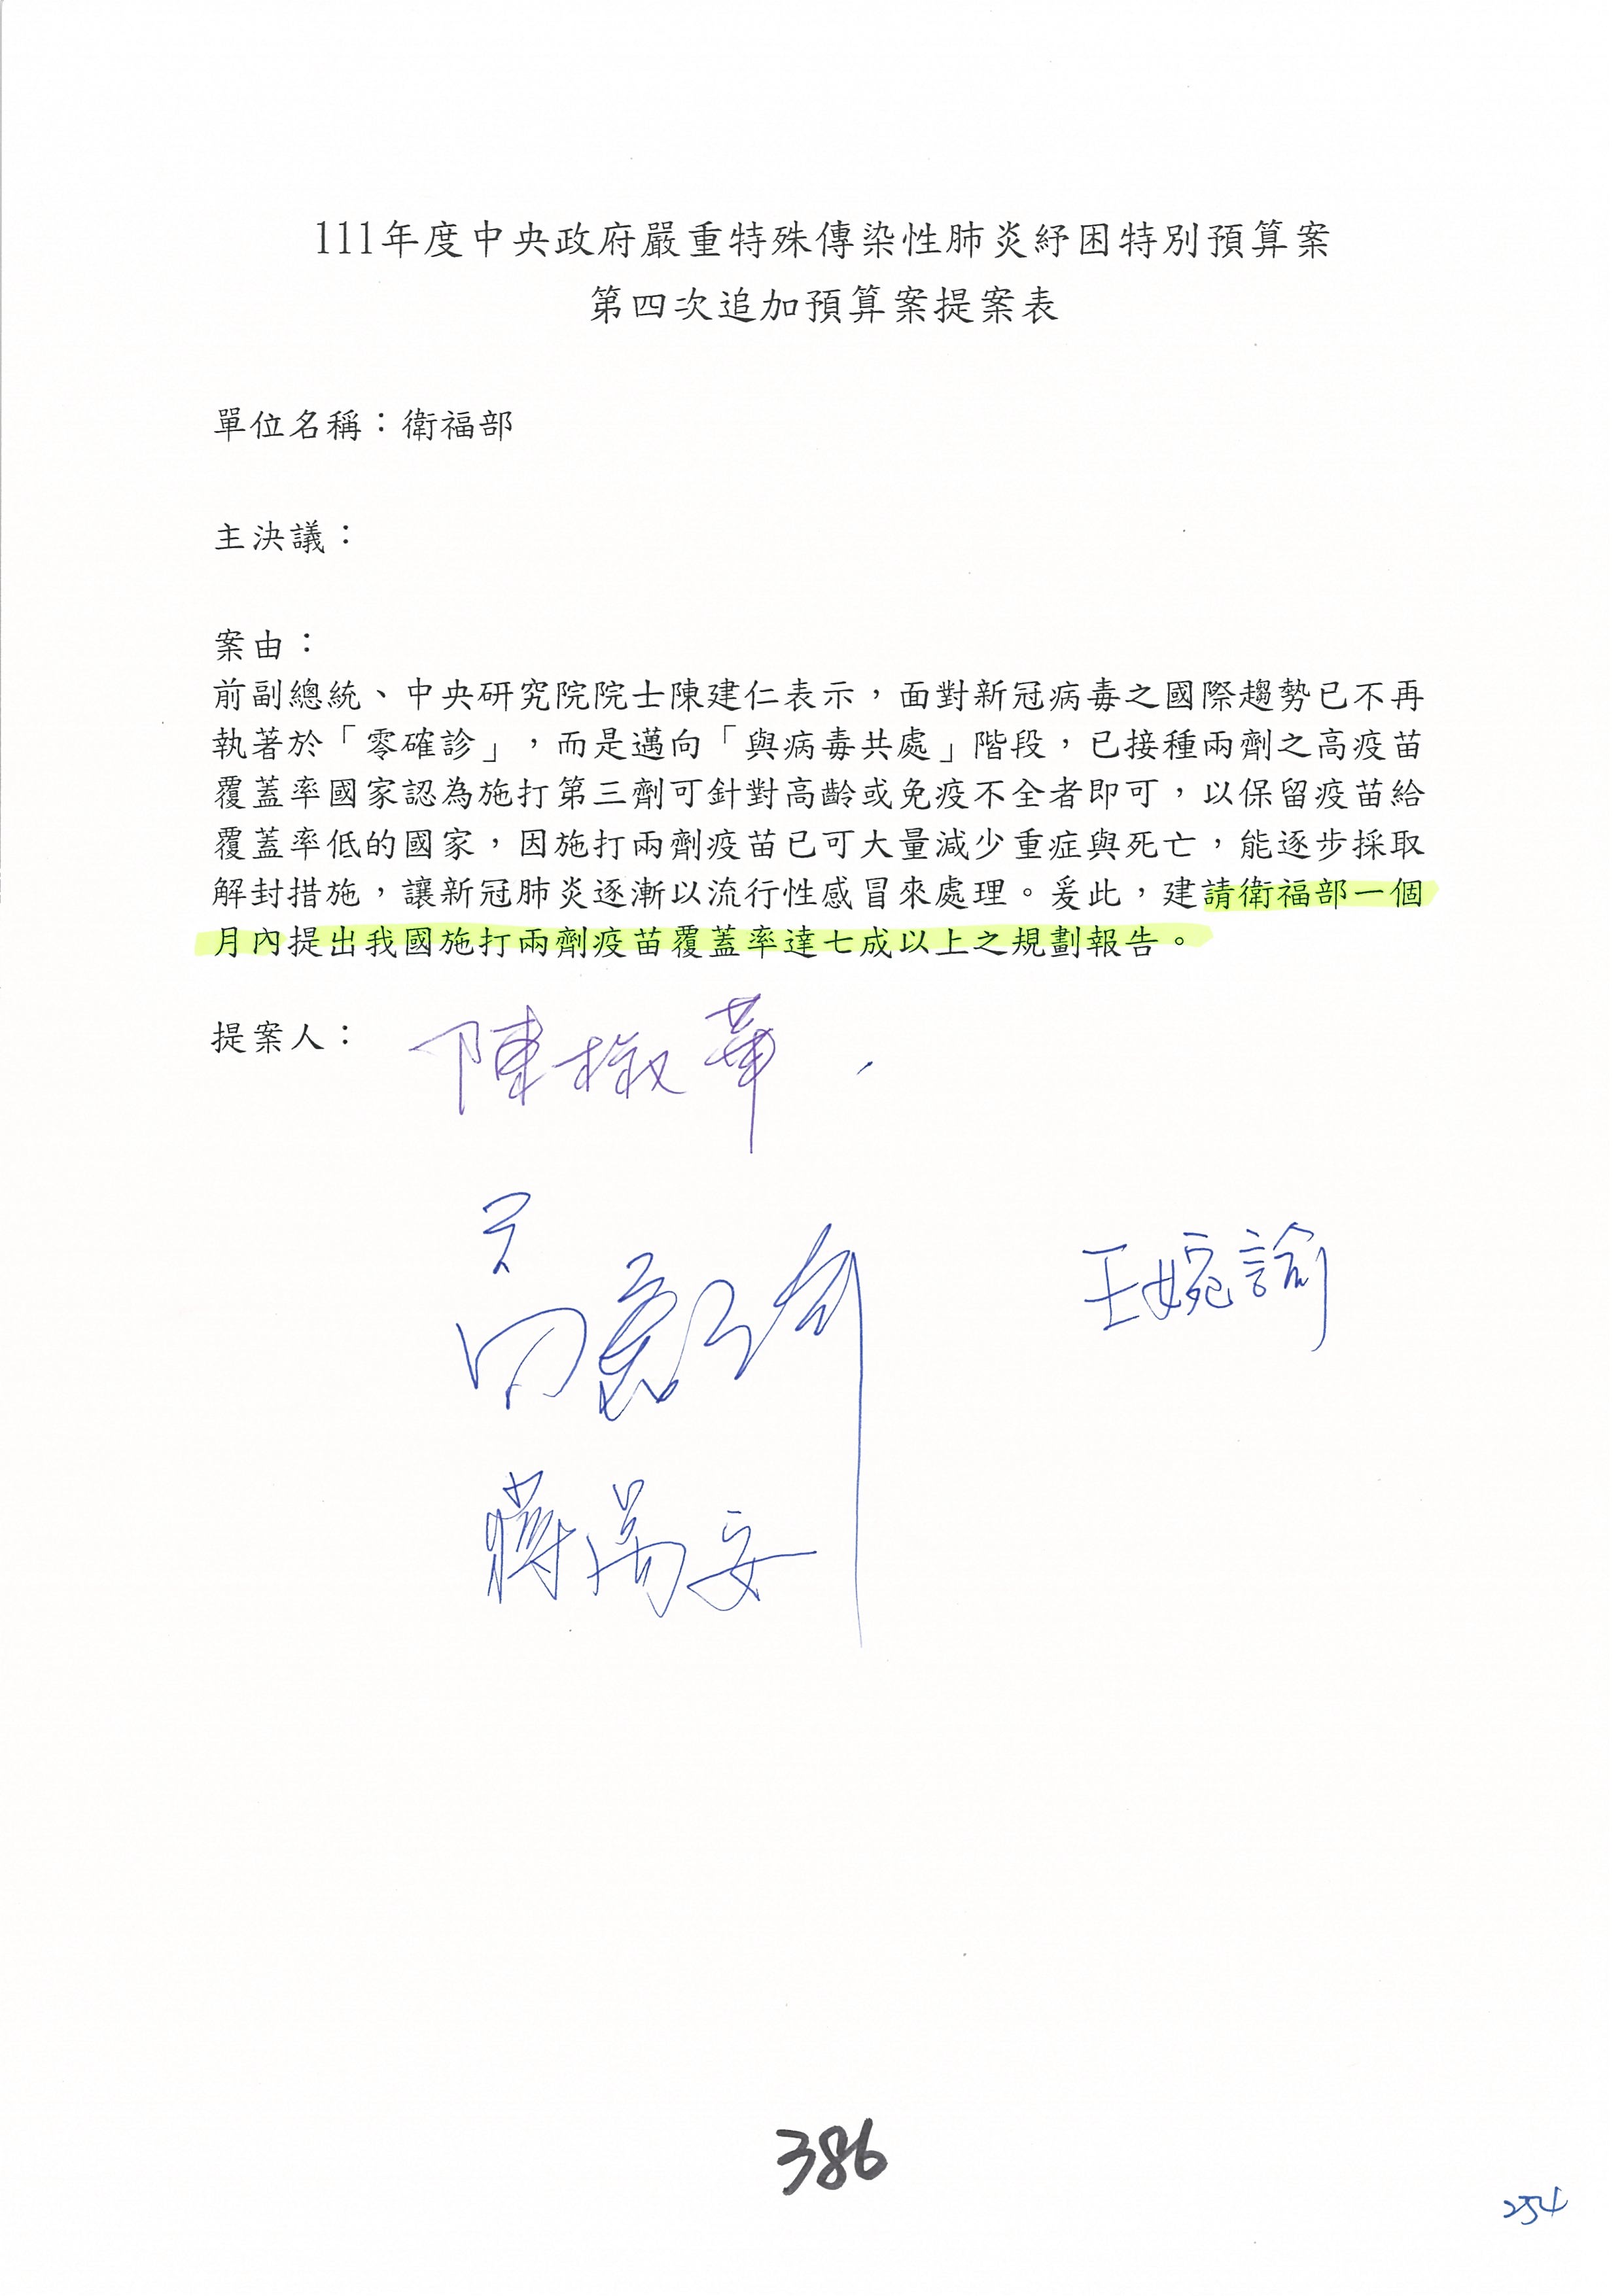 111年度中央政府嚴重特殊傳染性肺炎紓困特別預算案
第四次追加預算案提案表
單位名稱：衛福部
主決議：
案由：
前副總統、中央研究院院士陳建仁表示，面對新冠病毒之國際趨勢已不再
執著於「零確診」，而是邁向「與病毒共處」階段，已接種兩劑之高疫苗
覆蓋率國家認為施打第三劑可針對高齡或免疫不全者即可，以保留疫苗給
覆蓋率低的國家，因施打兩劑疫苗已可大量減少重症與死亡，能逐步採取
解封措施，讓新冠肺炎逐漸以流行性感冒來處理。爰此，建請衛福部一個
月內提出我國施打兩劑疫苗覆蓋率達七成以上之規劃報告。
提案人：陳椒華
王婉諭
386
254